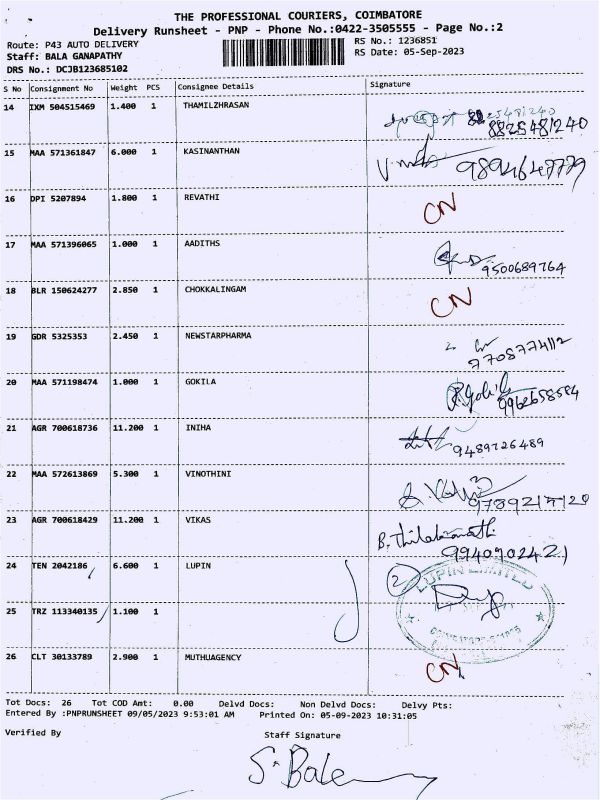 THE PROFESSIONAL COURIERS, COIMBATORE
Delivery Runsheet - PNP - Phone No.:0422-3505555 - Page No.:2
Route: P43 AUTO DELIVERY RS No.: 1236851
Staff: BALA GANAPATHY RS Date: 05-Sep-2023
DRS No.: DCJB123685102
S No Consignment No Weight PCS Consignee Details Signature
14 IXM 504515469 1.400 1 THAMILZHRASAN
8825481240
15 MAA 571361847 6.000 1 KASINANTHAN
9894647779
16 DPI 5207894 1.800 1 REVATHI CN
17 MAA 571396065 1.000 1 AADITHS
9500689764
18 BLR 150624277 2.850 1 CHOKKALINGAM CN
19 GDR 5325353 2.450 1 NEWSTARPHARMA
7708774112
20 MAA 571198474 1.000 1 GOKILA
9962658584
21 AGR 700618736 11.200 1 INIHA
9489726489
22 MAA 572613869 5.300 1 VINOTHINI
23 AGR 700618429 11.200 1 VIKAS B. Thilakanathi
9940902421
24 TEN 2042186 6.600 1 LUPIN 2 LUPIN LIMITED
25 TRZ 113340135 1.100 1
26 CLT 30133789 2.900 1 MUTHUAGENCY CN
Tot Docs: 26 Tot COD Amt: 0.00 Delvd Docs: Non Delvd Docs: Delvy Pts:
Entered By :PNPRUNSHEET 09/05/2023 9:53:01 AM Printed On: 05-09-2023 10:31:05
Verified By Staff Signature
S. Bale